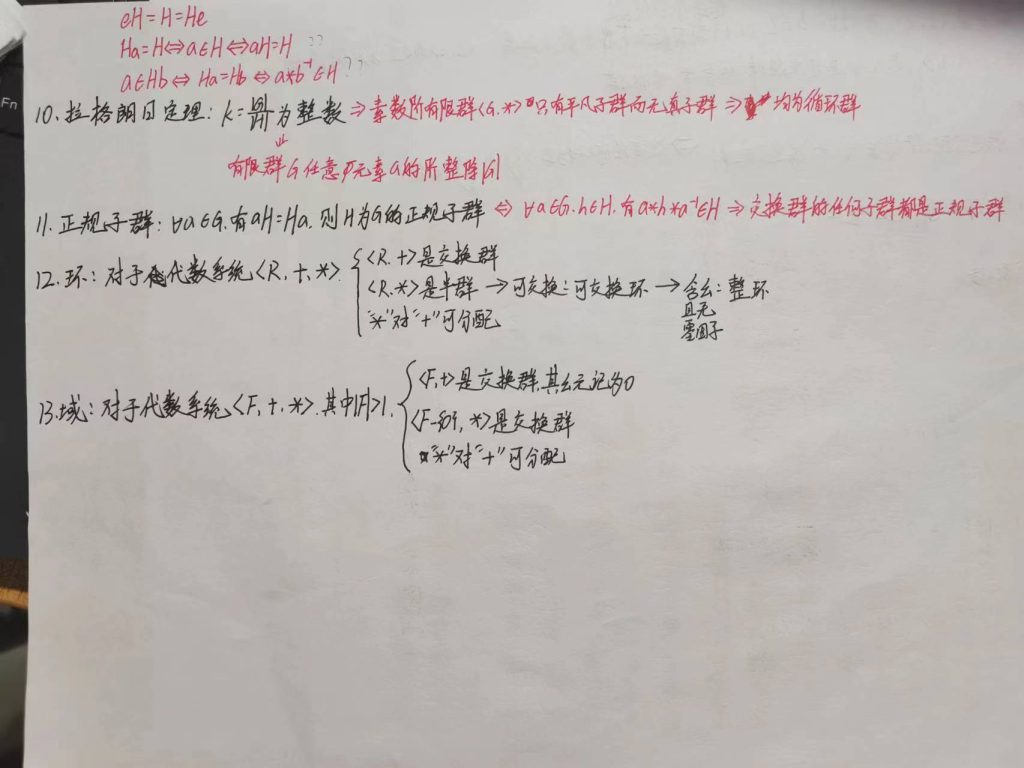 Fn
eH=H=He
Ha=H⇔a∈H⇔aH=H ??
a∈Hb⇔Ha=Hb⇔a*b⁻¹∈H ??
10.拉格朗日定理:k=|G|/|H|为整数⇒素数阶有限群<G,*>只有平凡子群而无真子群⇒均为循环群
⇓
有限群G任意元素a的阶整除|G|
11.正规子群:∀a∈G,有aH=Ha,则H为G的正规子群⇔∀a∈G,h∈H,有a*h*a⁻¹∈H⇒交换群的任何子群都是正规子群
12.环:对于代数系统<R,+,*>.
<R,+>是交换群
<R,*>是半群→可交换:可交换环→含幺:整环
且无
零因子
"*"对"+"可分配
13.域:对于代数系统<F,+,*>.其中|F|>1.
<F,+>是交换群,其幺元记为0
<F-{0},*>是交换群
"*"对"+"可分配